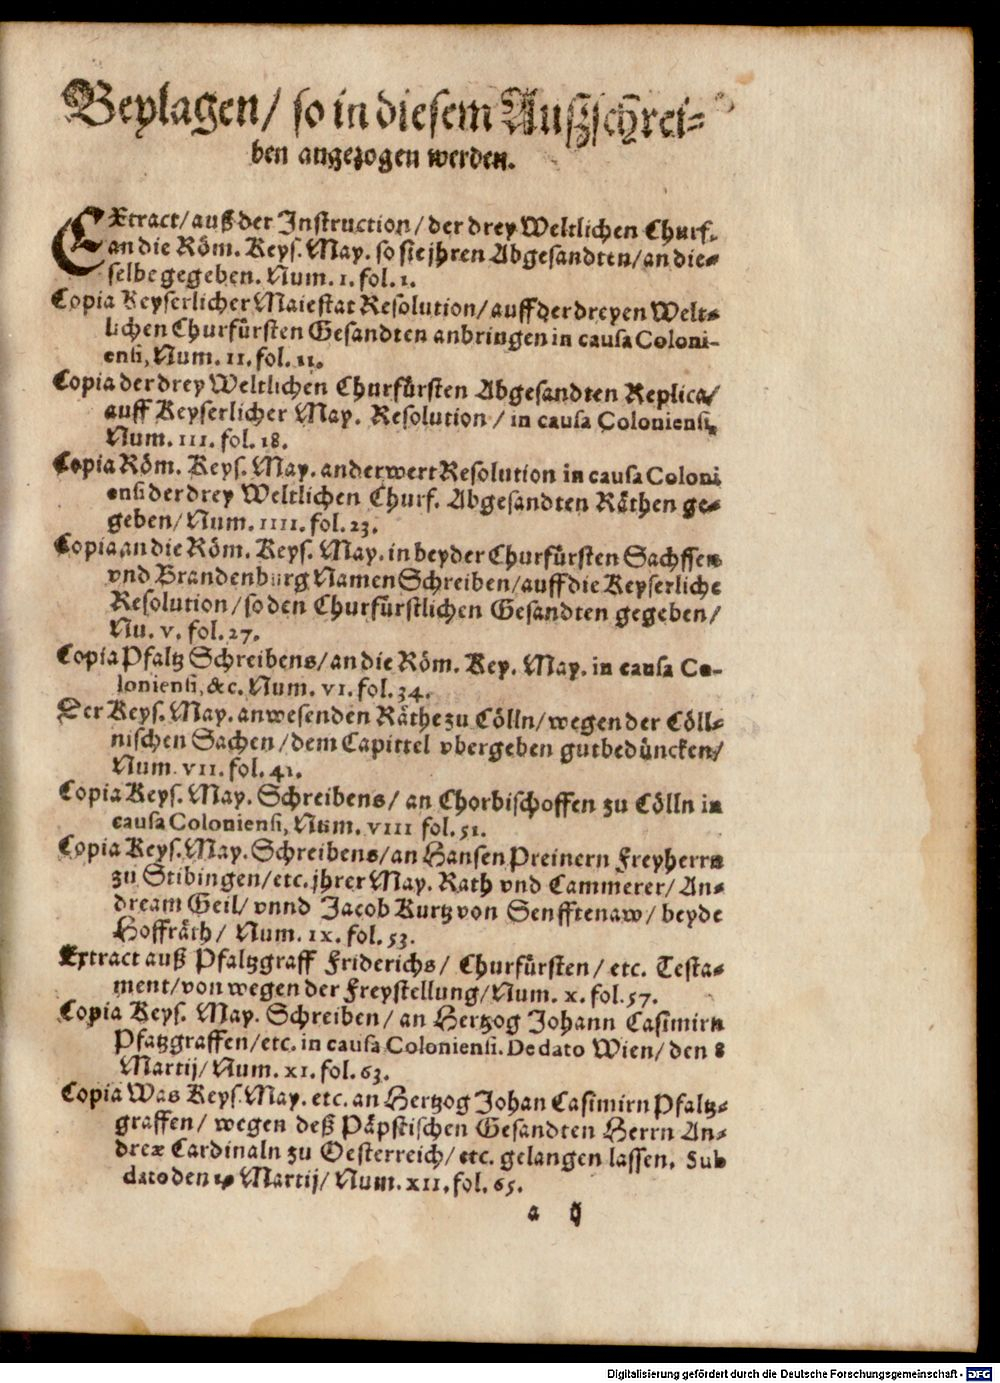 Beylagen/ so in diesem Außschrei-
ben angezogen werden.
EXtract/ auß der Instruction/ der drey Weltlichen Churf.
an die Röm. Keys. May. so sie jhren Abgesandten/ an die-
selbe gegeben. Num. I. fol. 1.
Copia Keyserlicher Maiestat Resolution/ auff der dreyen Welt-
lichen Churfürsten Gesandten anbringen in causa Coloni-
ensi, Num. II. fol. 11.
Copia der drey Weltlichen Churfürsten Abgesandten Replica/
auff Keyserlicher May. Resolution/ in causa Coloniensi,
Num. III. fol. 18.
Copia Röm. Keys. May. anderwert Resolution in causa Coloni
ensi der drey Weltlichen Churf. Abgesandten Räthen ge-
geben/ Num. IIII. fol. 23.
Copia an die Röm. Keys. May. in beyder Churfürsten Sachssen
vnd Brandenburg Namen Schreiben/ auff die Keyserliche
Resolution/ so den Churfürstlichen Gesandten gegeben/
Nu. V. fol. 27.
Copia Pfaltz Schreibens/ an die Röm. Key. May. in causa Co-
loniensi, &c. Num. VI. fol. 34.
Der Keys. May. anwesenden Räthe zu Cölln/ wegen der Cöll-
nischen Sachen/ dem Capittel vbergeben gutbedüncken/
Num. VII. fol. 41.
Copia Keys. May. Schreibens/ an Chorbischoffen zu Cölln in
causa Coloniensi, Num. VIII fol. 51.
Copia Keys. May. Schreibens/ an Hansen Preinern Freyherrn
zu Stibingen/ etc. jhrer May. Rath vnd Cammerer/ An-
dream Geil/ vnnd Jacob Kurtz von Senfftenaw/ beyde
Hoffräth/ Num. IX. fol. 53.
Extract auß Pfaltzgraff Friderichs/ Churfürsten/ etc. Testa-
ment/ von wegen der Freystellung/ Num. X. fol. 57.
Copia Keys. May. Schreiben/ an Hertzog Johann Casimirn
Pfatzgraffen/ etc. in causa Coloniensi. De dato Wien/ den 8
Martij/ Num. XI. fol. 63.
Copia Was Keys. May. etc. an Hertzog Johan Casimirn Pfaltz-
graffen/ wegen deß Päpstischen Gesandten Herrn An-
dreæ Cardinaln zu Oesterreich/ etc. gelangen lassen. Sub
dato den Martij/ Num. XII. fol. 65.
a ij
Digitalisierung gefördert durch die Deutsche Forschungsgemeinschaft - DFG